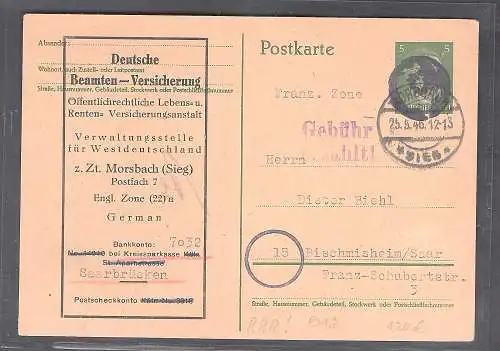 Absender:
Deutsche
Wohnort, auch Zustell- oder Leitpostamt
Beamten-Versicherung
Straße, Hausnummer, Gebäudeteil, Stockwerk oder Postschließfachnummer
Öffentlichrechtliche Lebens- u.
Renten- Versicherungsanstalt
Verwaltungsstelle
für Westdeutschland
z. Zt. Morsbach (Sieg)
Postfach 7
Engl. Zone (22)a
German
Bankkonto: 7o32
bei Kreissparkasse Köln
Saarbrücken
Postscheckkonto Köln No.
Postkarte
5 5
Franz. Zone
25.5.46.12-13
* SIEG *
Gebühr
bezahlt!
Herrn
Dieter Biehl
15 Bischmisheim/Saar
Franz-Schubertstr.
3
Straße, Hausnummer, Gebäudeteil, Stockwerk oder Postschließfachnummer
RRR!